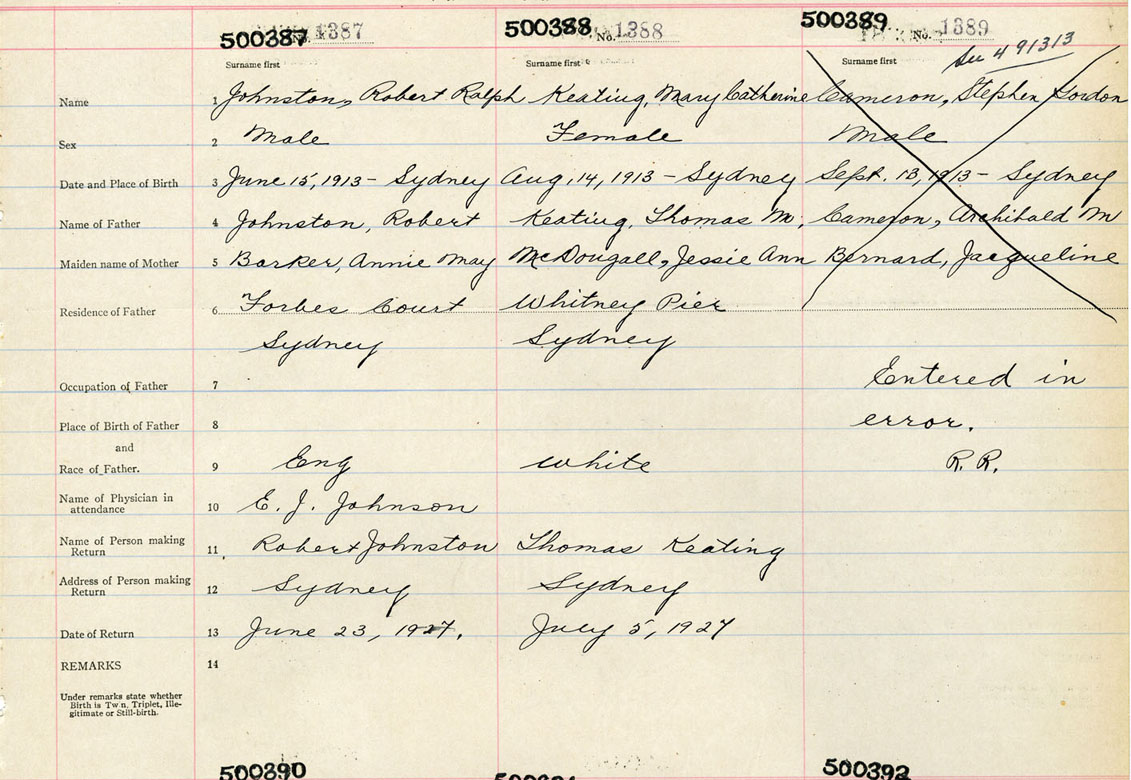 500387 No. 1387 500388 No. 1388 500389 No. 1389
Surname first Surname first Surname first See 491313
Name 1 Johnston, Robert Ralph Keating, Mary Catherine Cameron, Stephen Gordon
Sex 2 Male Female Male
Date and Place of Birth 3 June 15, 1913 - Sydney Aug. 14, 1913 - Sydney Sept. 13, 1913 - Sydney
Name of Father 4 Johnston, Robert Keating, Thomas M. Cameron, Archibald M
Maiden name of Mother 5 Barker, Annie May McDougall, Jessie Ann Bernard, Jacqueline
Residence of Father 6 Forbes Court Whitney Pier
Sydney Sydney
Occupation of Father 7 Entered in
Place of Birth of Father 8 error.
and
Race of Father. 9 Eng White R. R.
Name of Physician in
attendance 10 E. J. Johnson
Name of Person making
Return 11 Robert Johnston Thomas Keating
Address of Person making
Return 12 Sydney Sydney
Date of Return 13 June 23, 1927. July 5, 1927
REMARKS 14
Under remarks state whether
Birth is Twin, Triplet, Ille-
gitimate or Still-birth.
500390 500392